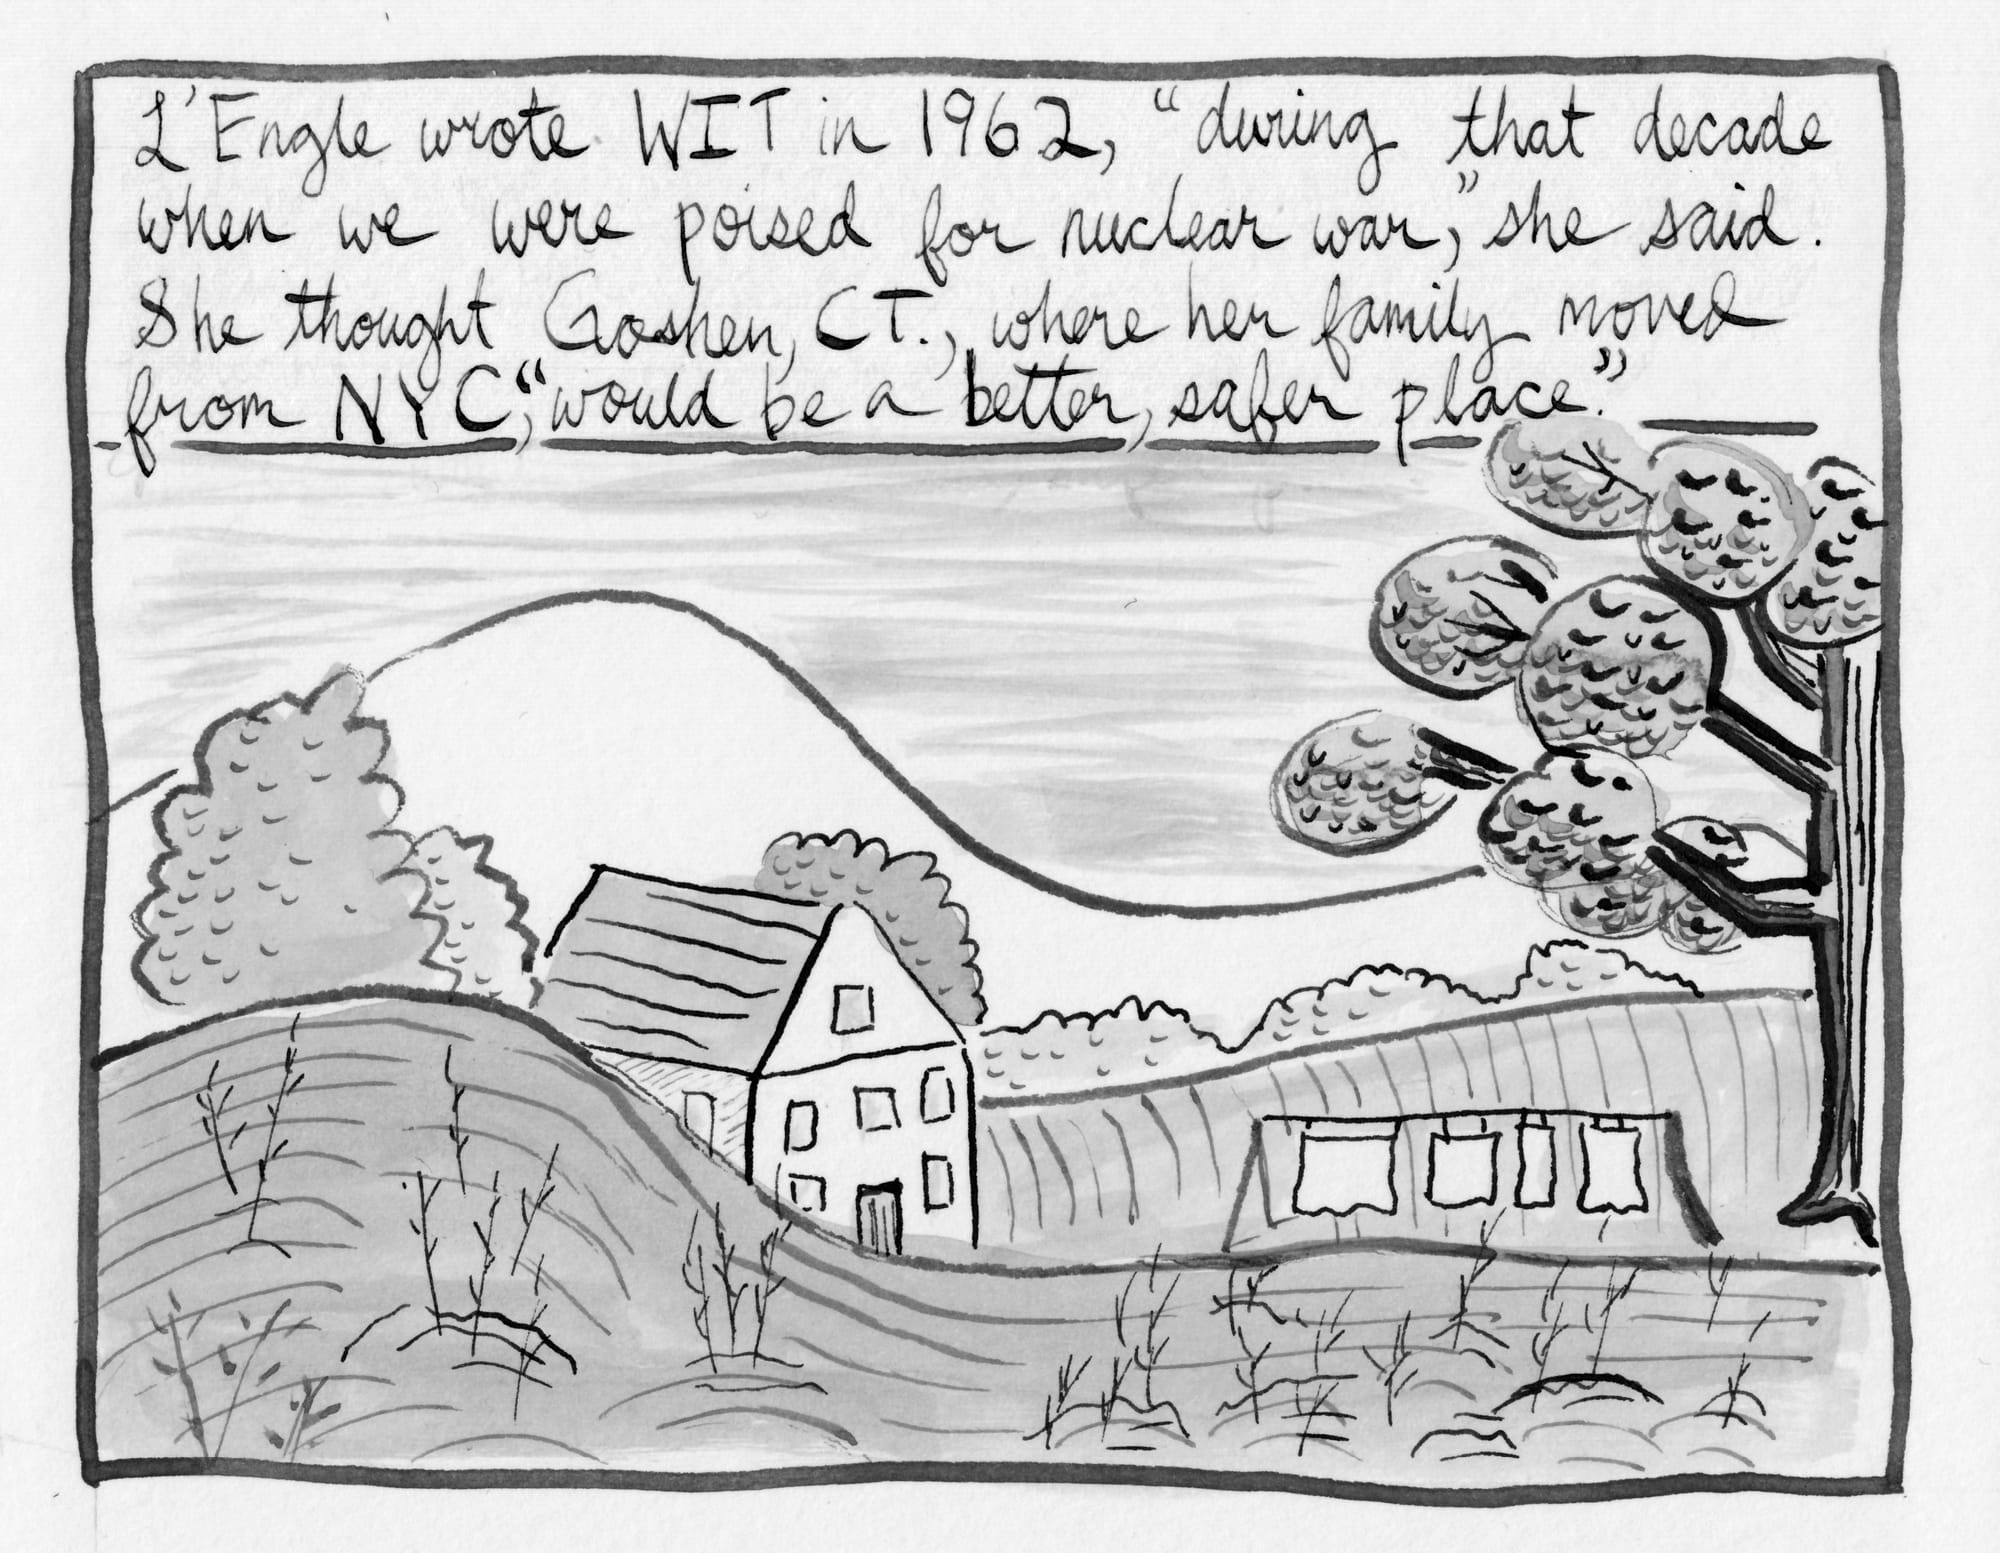 L'Engle wrote WIT in 1962, “during that decade
when we were poised for nuclear war,” she said.
She thought Goshen, CT., where her family moved
from NYC, “would be a better, safer place.”